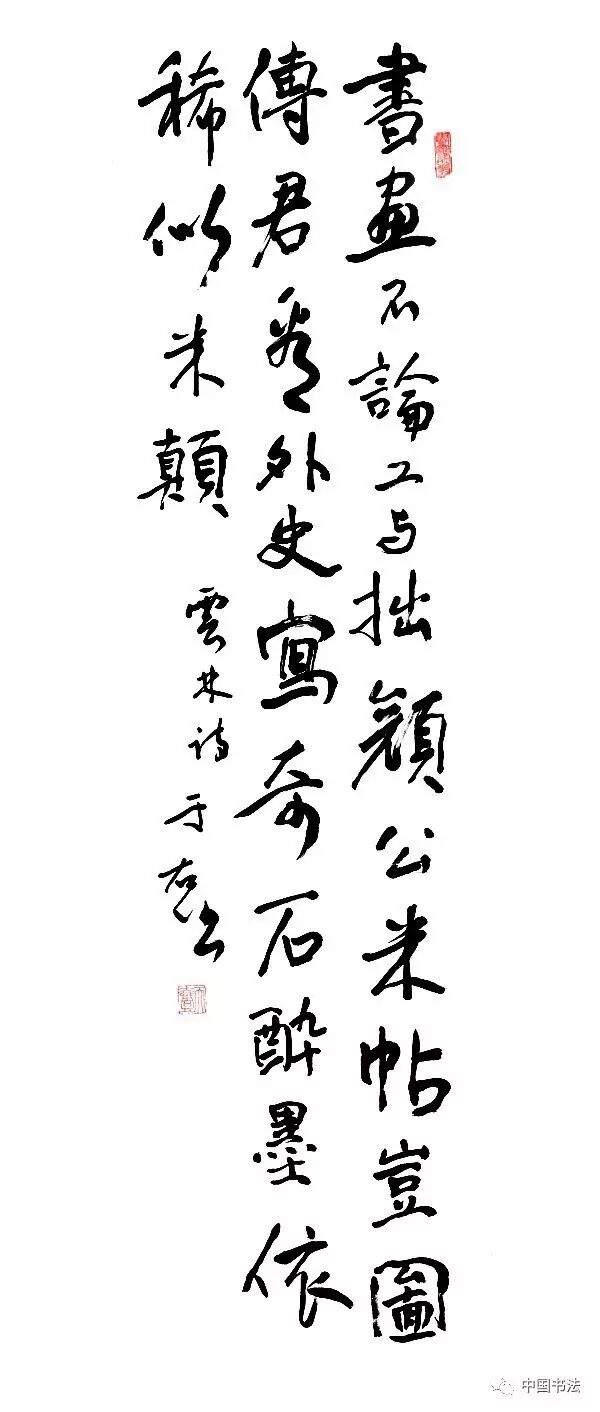 書畫不論工与拙顏公米帖豈圖
傳君看外史寫奇石酔墨依
稀似米顛
雲林詩于右書
中国书法